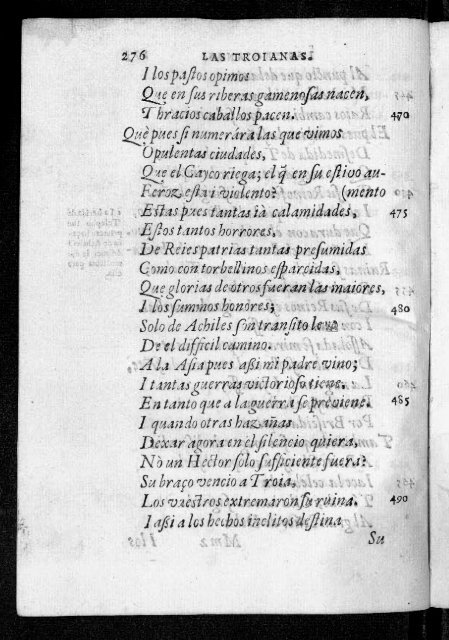 276 LAS TROIANAS.
I los pastos opimos
Que en sus riberas gamenosas nacen,
Thracios caballos pacen. 470
Què pues si numerára las que vimos
Opulentas ciudades,
Que el Cayco riega; el q̃ en su estivo au-
Feroz esta i violento? (mento
Estas pues tantas ià calamidades, 475
Estos tantos horrores,
De Reies patrias tantas presumidas
Como con torbellinos esparcidas,
Que glorias de otros fueran las maiores,
I los summos honores; 480
Solo de Achiles sõn transito leve
De el difficil camino.
A la Asia pues assi mi padre vino;
I tantas guerras victorioso tiene,
En tanto que a la guerra se previene. 485
I quando otras hazañas
Dexar agora en el silencio quiera,
Nò un Hector solo sufficiente fuera?
Su braço vencio a Troia,
Los vuestros extremaron su ruina. 490
I assi a los hechos inclitos destina
Su